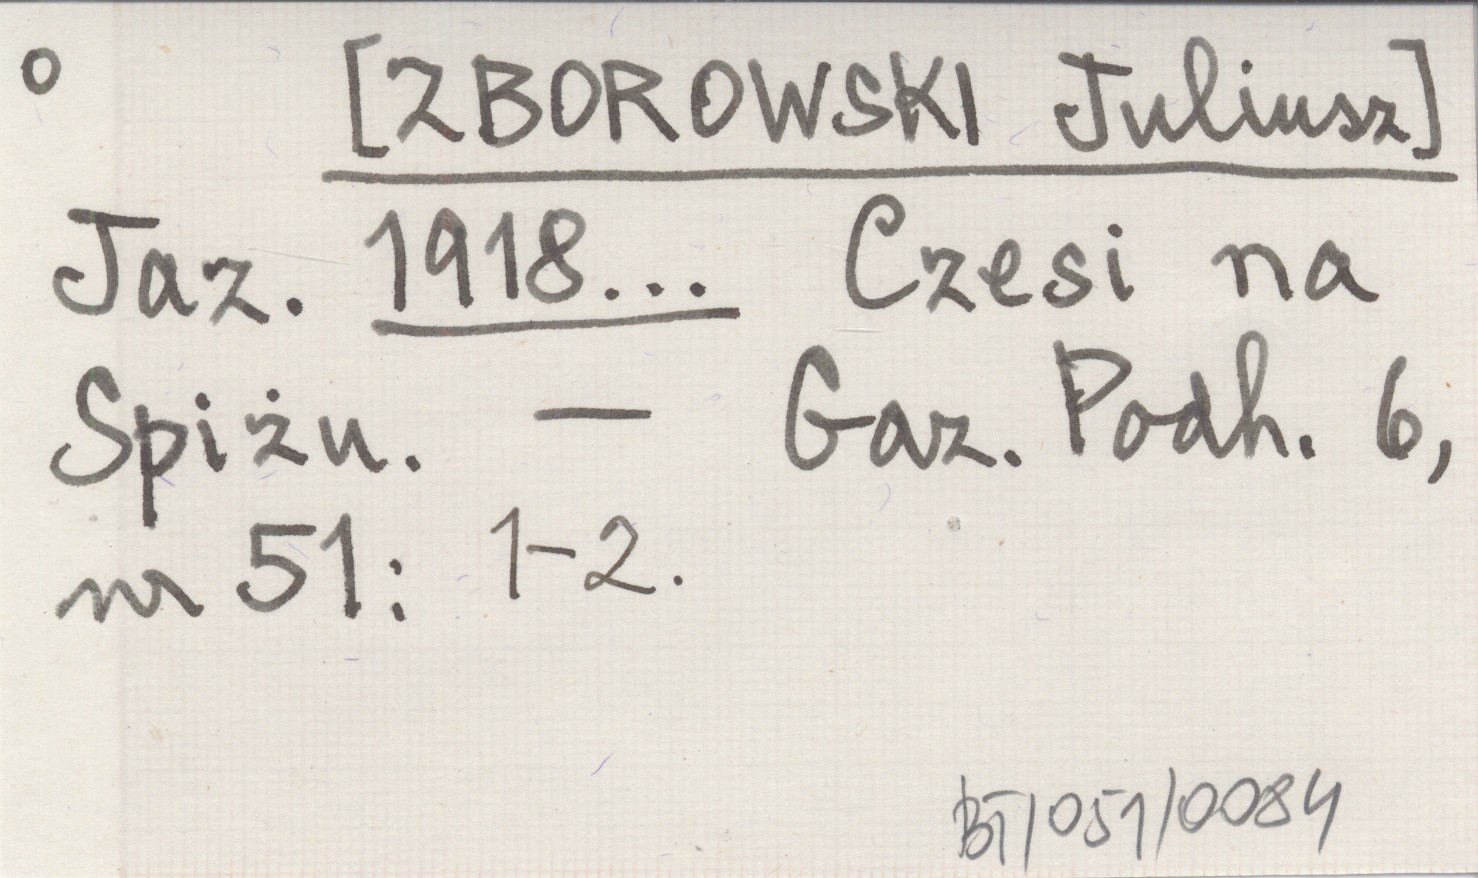 o [ZBOROWSKI Juliusz]
Jaz. 1918... Czesi na
Spiżu. — Gaz. Podh. 6,
nr 51: 1-2.
BT/051/0084